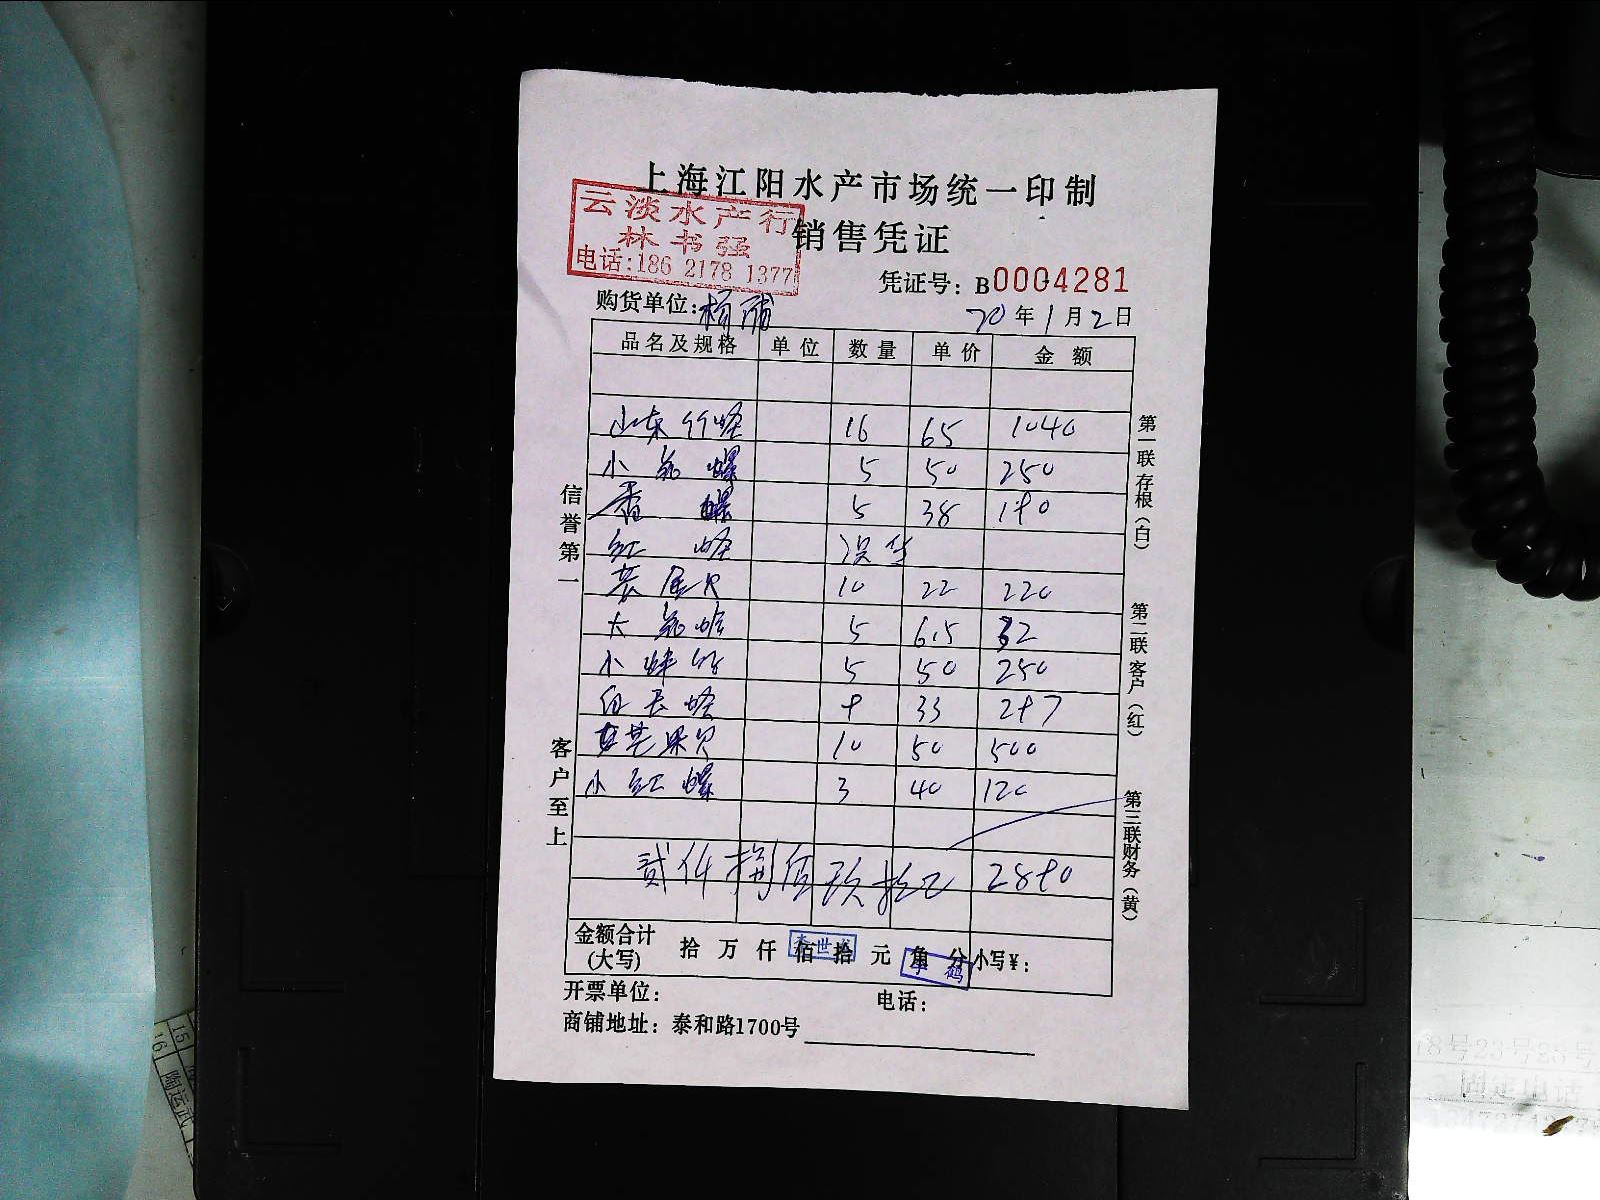 上海江阳水产市场统一印制
云淡水产行
林书强
电话:186 2178 1377
销售凭证
凭证号：B0004281
购货单位:杨浦
20年1月2日
品名及规格 单位 数量 单价 金额
山东竹蛏 16 65 1040
小 螺 5 50 250
香 螺 5 38 190
红 蛏
尾贝 10 22 220
大 蛤 5 6.5 32
小 5 50 250
白长蛏 9 33 297
芒果贝 10 50 500
小红螺 3 40 120
贰仟捌佰玖拾元 2890
金额合计
(大写)
拾 万 仟 佰 拾 元 角 分 小写¥：
李世
鹤
开票单位：
电话：
商铺地址：泰和路1700号
信誉第一
客户至上
第一联存根(白)
第二联客户(红)
第三联财务(黄)
15
16
陶运武
18号23号23号
固定电话